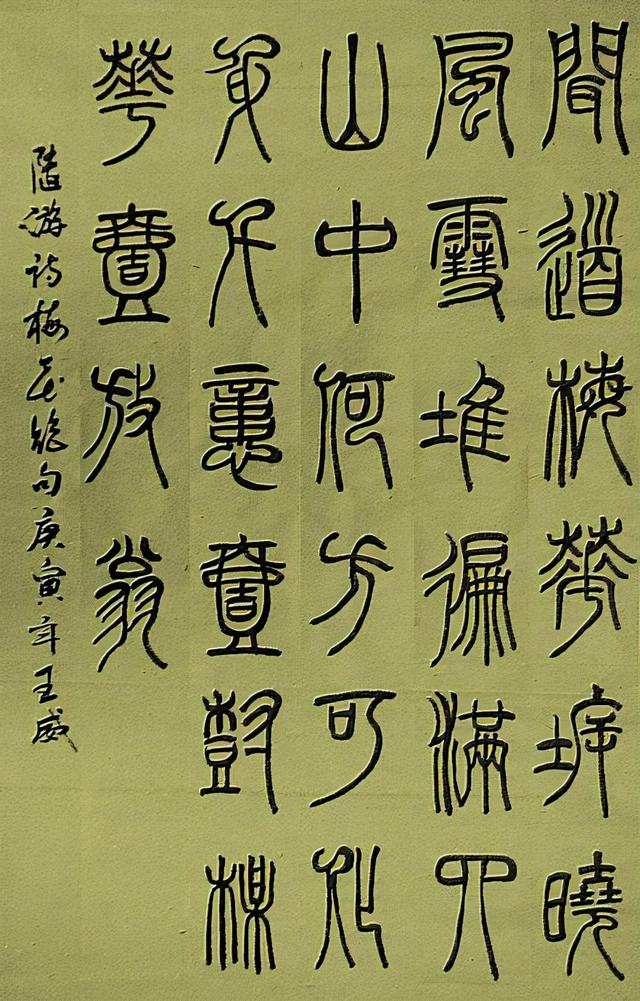 聞道梅華坼曉
風雪堆徧滿四
山中何方可化
身千意壹尌楳
華壹放翁
陸游詩梅花絕句庚寅年王威